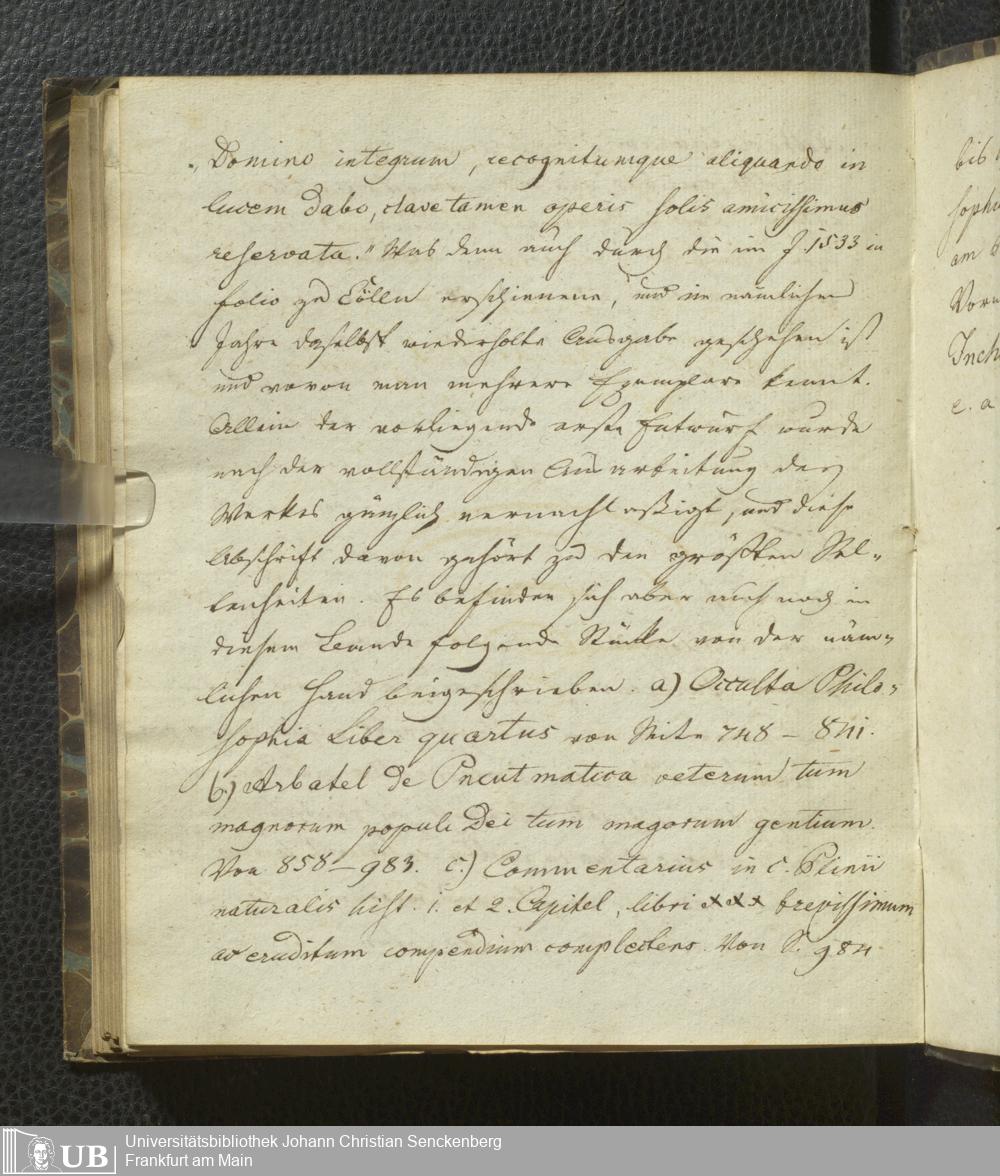 Domino integrum, recognitumque aliquando in
lucem dabo, clave tamen operis solis amicissimus
reservata." Was denn auch durch die im J. 1533 in
folio zu Cölln erschienene, und im nämlichen
Jahre daselbst wiederholte Ausgabe geschehen ist
und wovon man mehrere Exemplare kennt.
Allein der vorliegende erste Entwurf wurde
nach der vollständigen Ausarbeitung des
Werkes gänzlich vernachlaßigt, und diese
Abschrift davon gehört zu den größten Sel-
tenheiten. Es befinden sich aber auch noch in
diesem Bande folgende Stücke von der näm-
lichen Hand beigeschrieben. a) Occulta Philo-
sophia Liber quartus von Seite 748 – 841.
b.) Arbatel de Pneutmatica veterum tum
magnorum populi Dei tum magorum gentium.
Von 858 – 983. c.) Commentarius in C. Plinii
naturalis hist. 1. et 2. Capitel, libri xxx brevissimum
ac eruditum compendium complectens. Von S. 984
bis
sophi
am
Vor
e. a
UB
Universitätsbibliothek Johann Christian Senckenberg
Frankfurt am Main